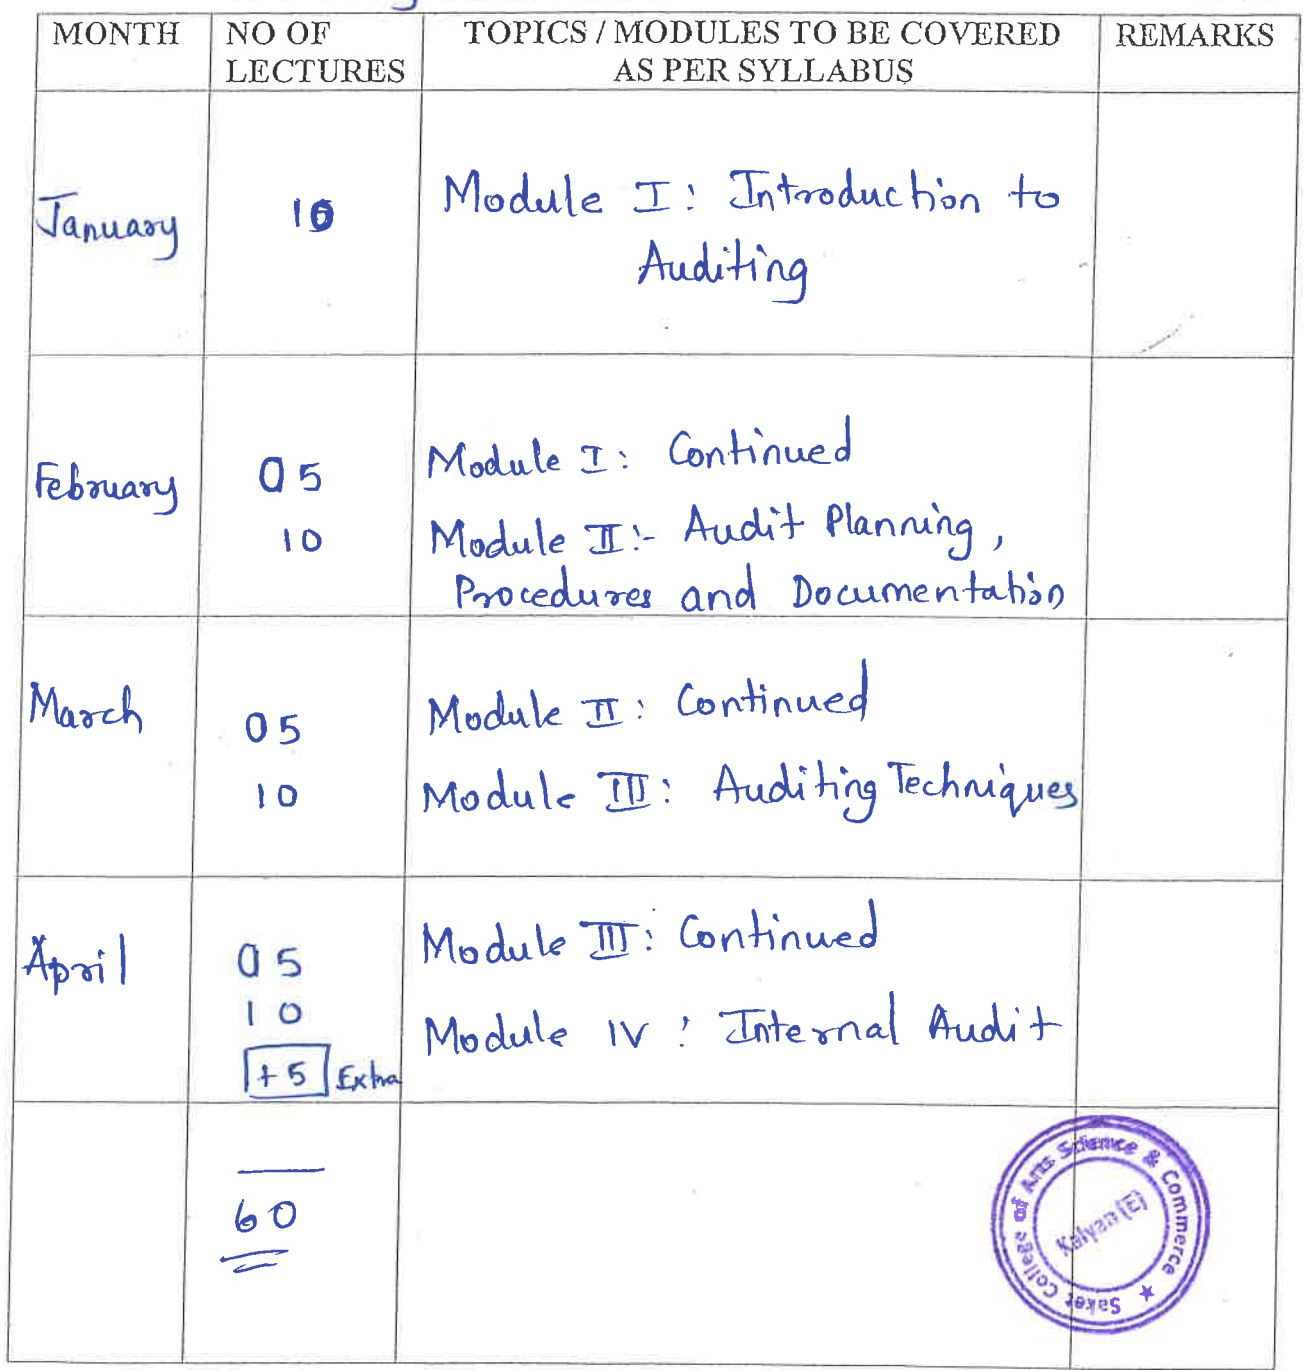 MONTH
NO OF
LECTURES
TOPICS / MODULES TO BE COVERED
AS PER SYLLABUS
REMARKS
January
10
Module I: Introduction to
Auditing
February
05
Module I: Continued
10
Module II:- Audit Planning,
Procedures and Documentation
March
05
Module II: Continued
10
Module III: Auditing Techniques
April
05
Module III: Continued
10
Module IV: Internal Audit
+5 Extra
60
Saket College of Arts Science & Commerce ★
Kalyan (E)